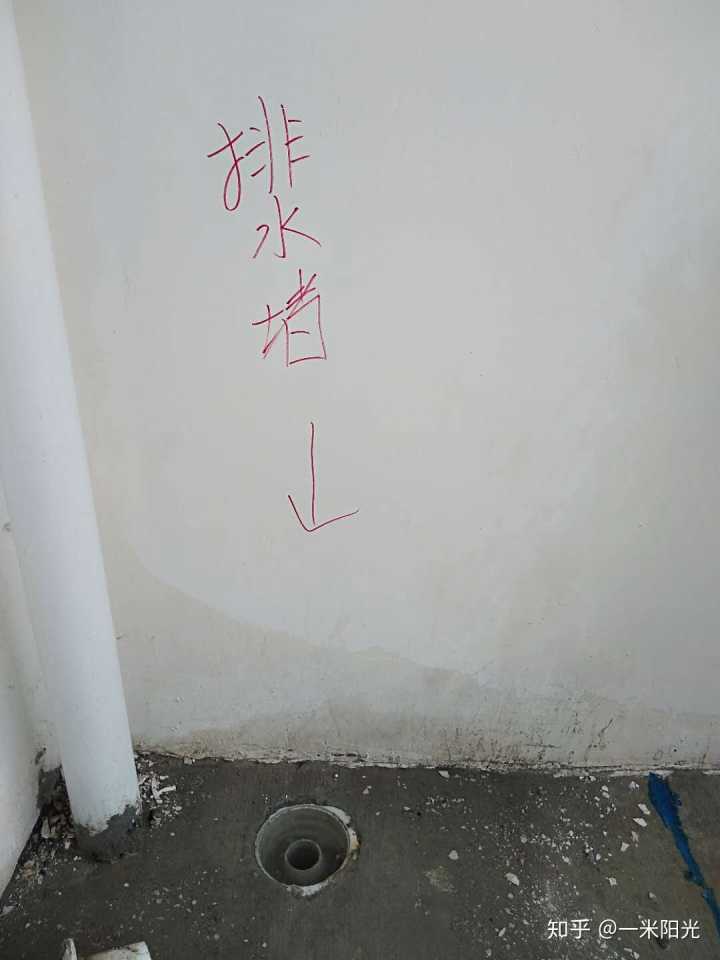 排水堵
知乎 @一米阳光